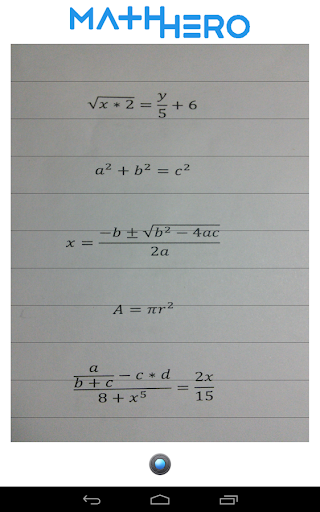 MATHHERO
√x * 2 = y/5 + 6
a² + b² = c²
x = (-b ± √(b² − 4ac))/2a
A = πr²
(a/(b + c) − c * d)/(8 + x⁵) = 2x/15